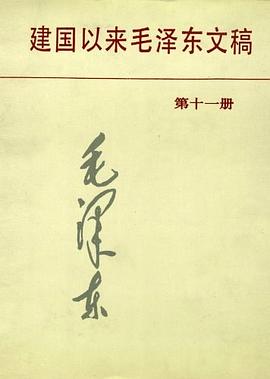 建国以来毛泽东文稿
第十一册
毛泽东